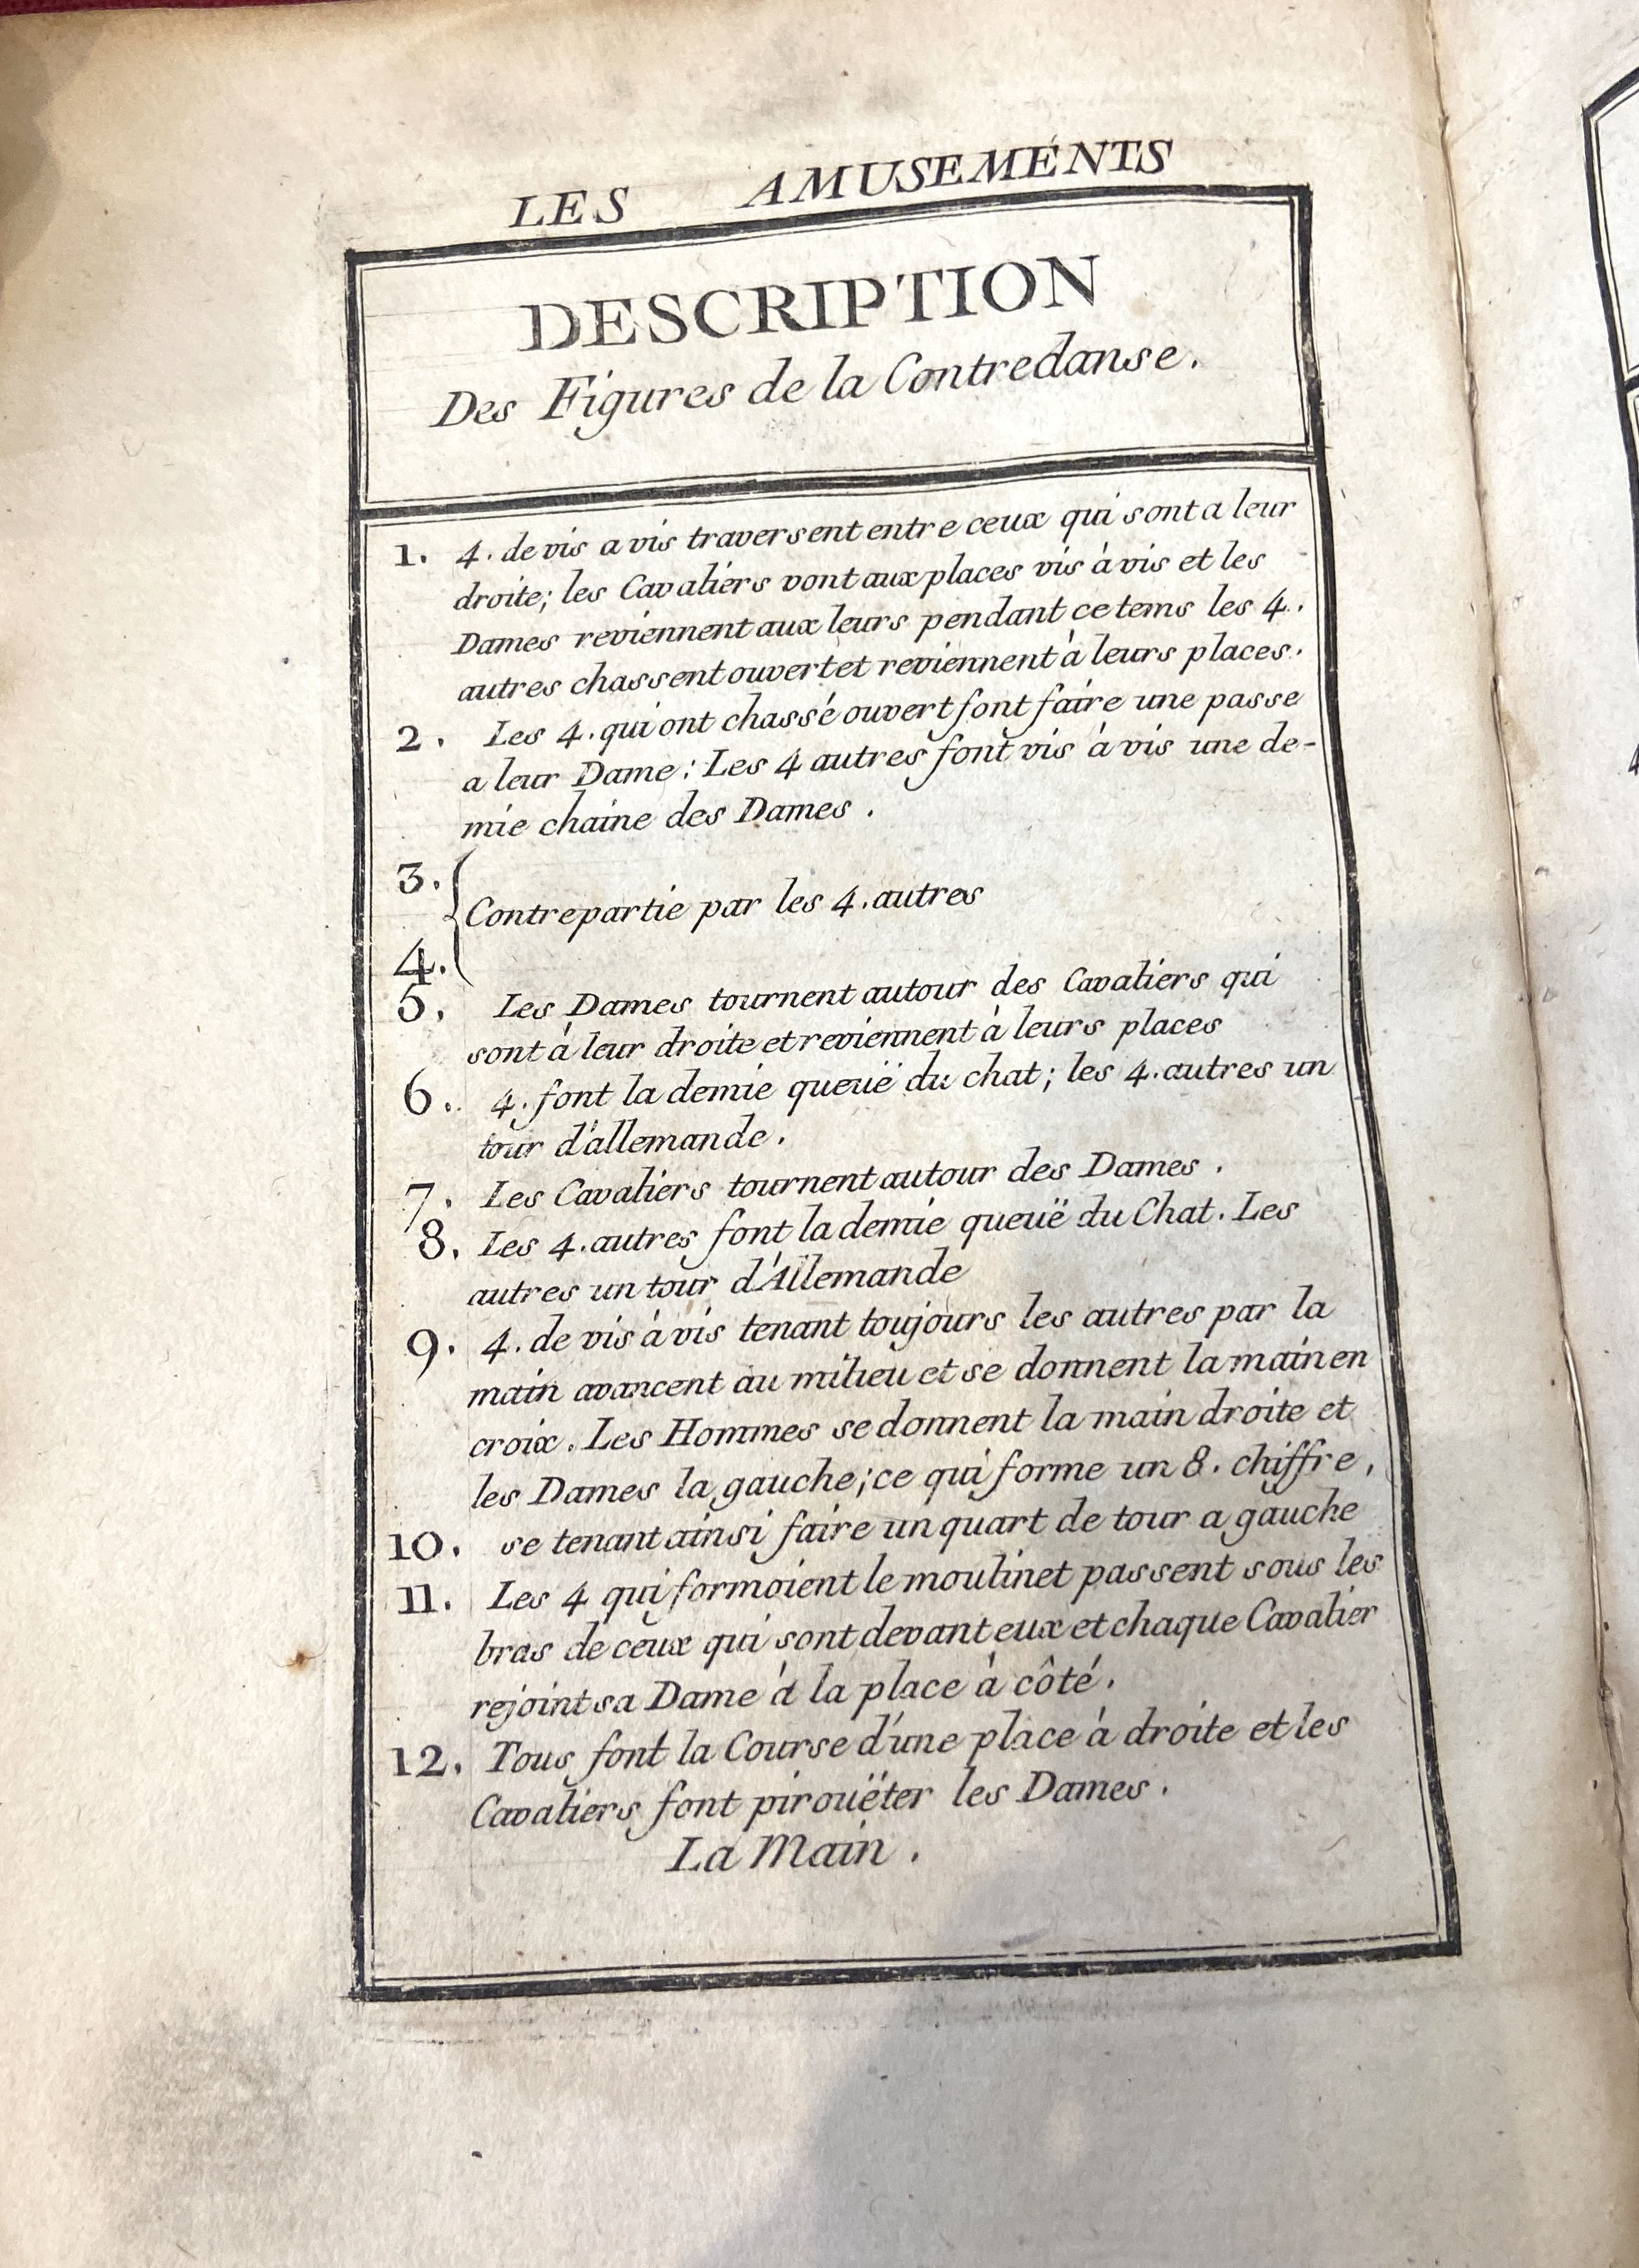 LES AMUSEMENTS
DESCRIPTION
Des Figures de la Contredanse.
1. 4. de vis a vis traversent entre ceux qui sont a leur
droite; les Cavaliers vont aux places vis à vis et les
Dames reviennent aux leurs pendant ce tems les 4.
autres chassent ouvert et reviennent à leurs places.
2. Les 4. qui ont chassé ouvert font faire une passe
a leur Dame: Les 4 autres font vis à vis une de-
mie chaine des Dames.
3.
Contrepartie par les 4. autres
4.
5. Les Dames tournent autour des Cavaliers qui
sont à leur droite et reviennent à leurs places
6. 4. font la demie queuë du chat; les 4. autres un
tour d'allemande.
7. Les Cavaliers tournent autour des Dames.
8. Les 4. autres font la demie queuë du Chat. Les
autres un tour d'Allemande
9. 4. de vis à vis tenant toujours les autres par la
main avancent au milieu et se donnent la main en
croix. Les Hommes se donnent la main droite et
les Dames la gauche; ce qui forme un 8. chiffre,
10. se tenant ainsi faire un quart de tour a gauche
11. Les 4 qui formoient le moulinet passent sous les
bras de ceux qui sont devant eux et chaque Cavalier
rejoint sa Dame à la place à côté.
12. Tous font la Course d'une place à droite et les
Cavaliers font pirouëter les Dames.
La Main.